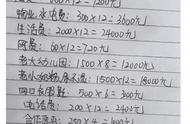 600×12=7200元
物业水电费: 300×12=3600元
生活费: 2000×12=24000元
网费: 60×12=720元
老大幼儿园: 1500×8=12000元
老小奶粉尿不湿: 1500×12=18000元
四口衣服鞋: 500×6=3000元
电话费: 200×12=2400元
合作医疗: 250×4=